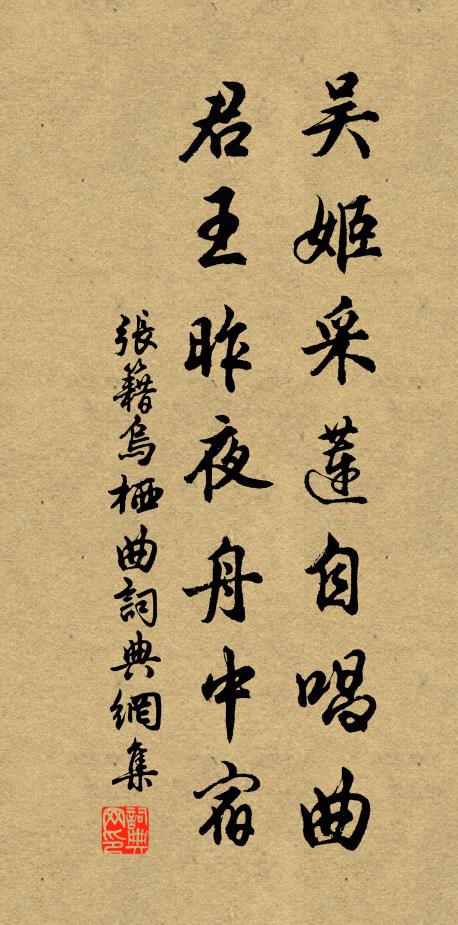 吴姬采蓮自唱曲
君王昨夜舟中宿
張籍烏栖曲詞典網集
詞典网印